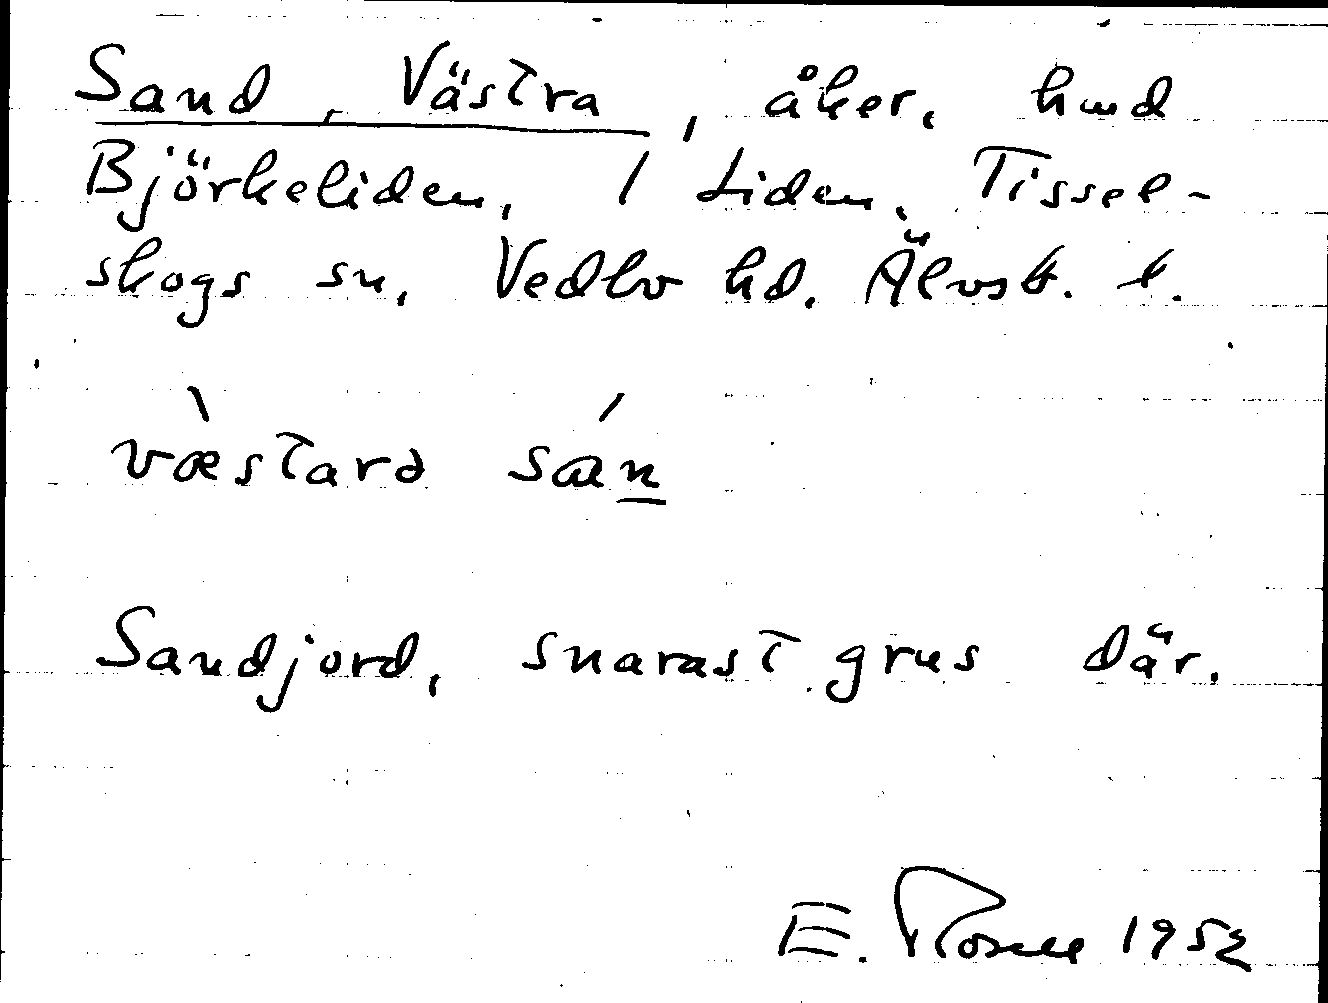 Sand, Västra, åker, hmd
Björkeliden, 1 Liden, Tissel-
skogs sn, Vedbo hd. Älvsb. l.
væ̀starə sán
Sandjord, snarast grus där.
E. Rosell 1952